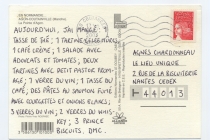 AUJOURD'HUI, J'AI MANGÉ: 1
TASSE DE THÉ; 1 TARTINE
1 CAFÉ CRÈME; 1 SALADE AVEC
ADVOCATS ET TOMATES; DEUX
TARTINES AVEC PETIT PASTOR FROM-
AGE; 1 VERRE DU VIN; 1 TASSE
DU CAFÉ; DES PÂTES AU SAUMON FUMÉ
AVEC COURGETTES ET OIGNONS
VERRE DU VIN; 2 VERRES DU WHIS-
KEY; 3 PRINCE
BISCUITS. DMC.
AGNÈS CHARDONNEAU
LE LIEU UNIQUE
2 RUE DE LA BISCUITERIE
NANTES CEDEX
44013